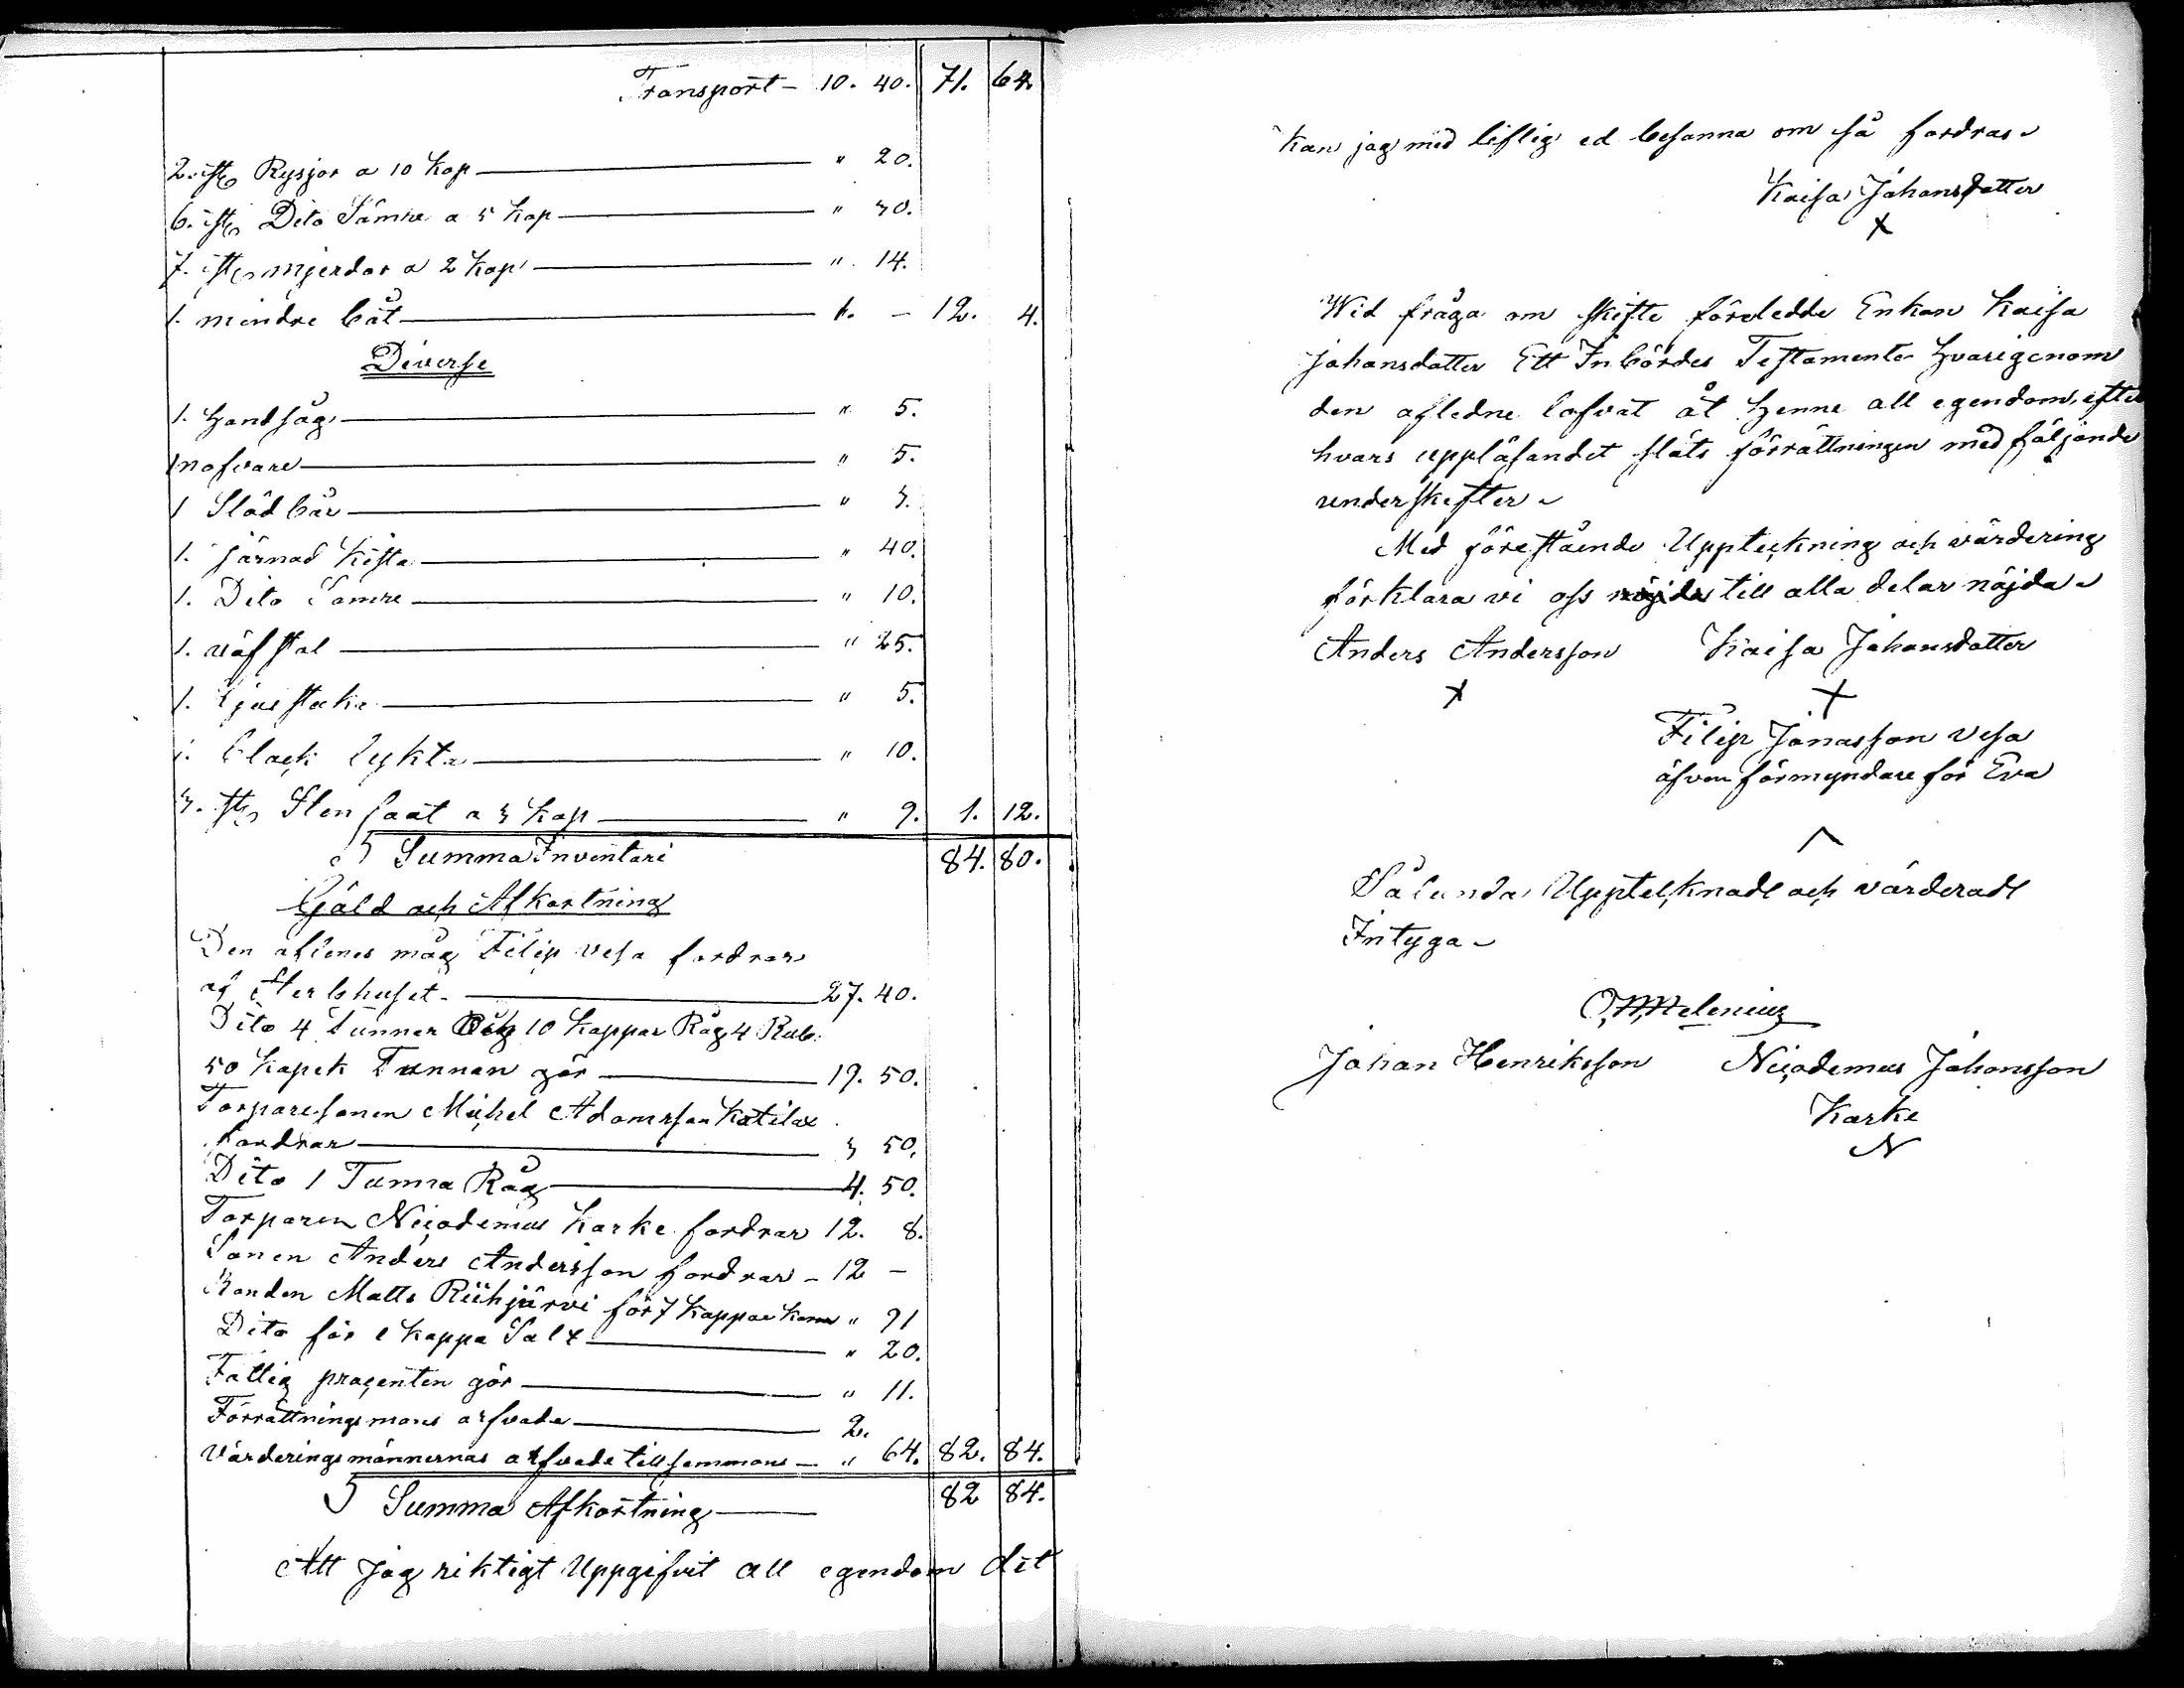 Transport - 10. 40. 71. 64.
2. st Rysjor a 10 Kop " 20.
6. st Dito Sämre a 5 Kop " 30.
7. st mjerdar a 2 Kop " 14.
1. mindre båt 1. - 12. 4.
Diverse
1. Handsåg " 5.
1 nafvare " 5.
1 Städ " 3.
1. järnad Kista " 40.
1. Dito Sämre " 10.
1. väfstol " 25.
1. Ljusstake " 5.
1. bläck lykta " 10.
3. st Stenfaat a 3 Kop " 9. 1. 12.
Summa Inventari 84. 80.
Gäld och Afkortning
Den aflenes måg Filip Vesa fordrar
af Sterbhuset 27. 40.
Dito 4 Tunnor 10 Kappar Råg 4 Rub.
50 Kopek Tunnan gör 19. 50.
Torparesonen Michel Adamsson Katilax
fordrar 3 50.
Dito 1 Tunna Råg 4. 50.
Torparen Nicodemus Karke fordrar 12. 8.
Sonen Anders Andersson fordrar - 12 -
Bonden Matts Riihjärvi för 7 Kappar Korn " 91
Dito för 1 Kappa Salt " 20.
Fattig procenten gör " 11.
Förrättningsmans arfvode 2.
Värderingsmännernas arfvode tillsammans - " 64. 82. 84.
Summa Afkortning 82 84.
Att Jag riktigt Uppgifvit all egendom det
Kan jag med liflig ed besanna om så fordras
Kaisa Johansdotter
X
Wid fråga om skifte företedde Enkan Kaisa
Johansdotter Ett Inbördes Testamente hvarigenom
den afledne lofvat åt henne all egendom, efter
hvars uppläsandet slöts förrättningen med följande
underskefter
Med föreståënde Uppteckning och värdering
förklara vi oss till alla delar nöjda
Anders Andersson Kaisa Johansdotter
X X
Filip Jonasson Vesa
äfven förmyndare för Eva
Sålunda Uppteknadt och värderadt
Intyga
Johan Henriksson Nicodemus Johansson
Karke
N